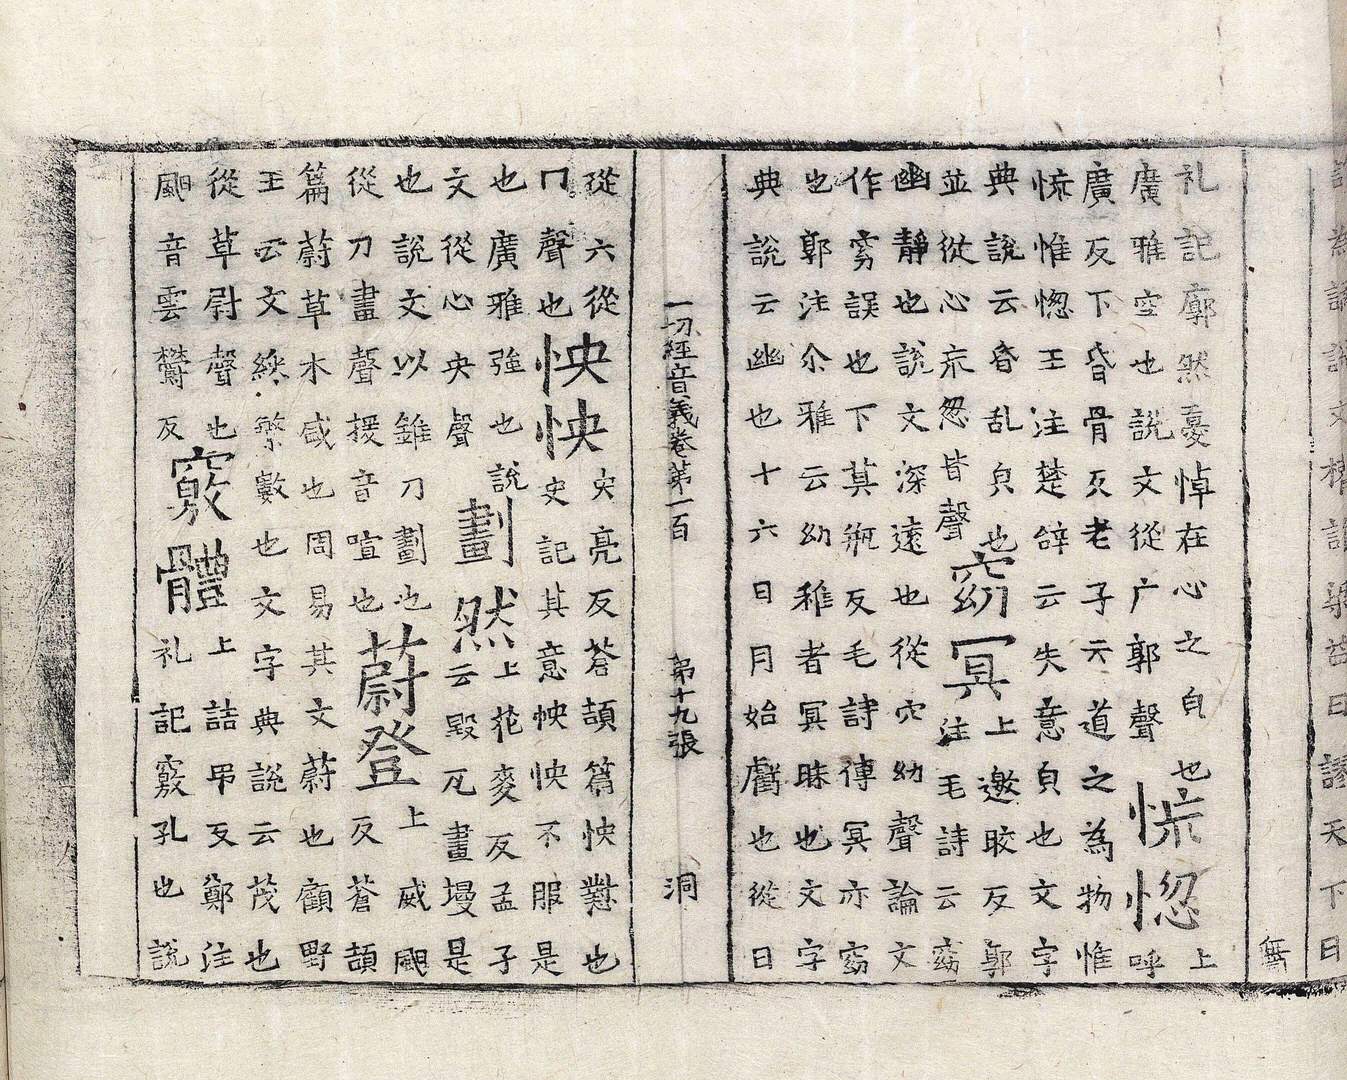 無
礼記廓然憂悼在心之皃也
廣雅空也說文從广郭聲
慌惚
上
呼
廣反下昏骨反老子云道之為物惟
慌惟惚王注楚辝云失意皃也文字
典說云昏乱皃也
並從心㡃忽皆聲
窈冥
上邀晈反郭
注毛詩云窈
幽靜也說文深遠也從穴幼聲論文
作窈誤也下莫瓶反毛詩傳冥亦窈
也郭注尒雅云幼稚者冥昧也文字
典說云幽也十六日月始虧也從日
一切經音義卷第一百 第十九張 洞
從六從
冖聲也
怏怏
央亮反蒼頡篇怏懟也
史記其意怏怏不服是
也廣雅強也說
文從心央聲
劃然
上花麥反孟子
云毀瓦畫墁是
也說文以錐刀劃也
從刀畫聲援音喧也
蔚登
上威䬑
反蒼頡
篇蔚草木盛也周易其文蔚也顧野
王云文綵繁數也文字典說云茂也
從草尉聲也
䬑音雲欝反
竅體
上詰吊反鄭注
礼記竅孔也說